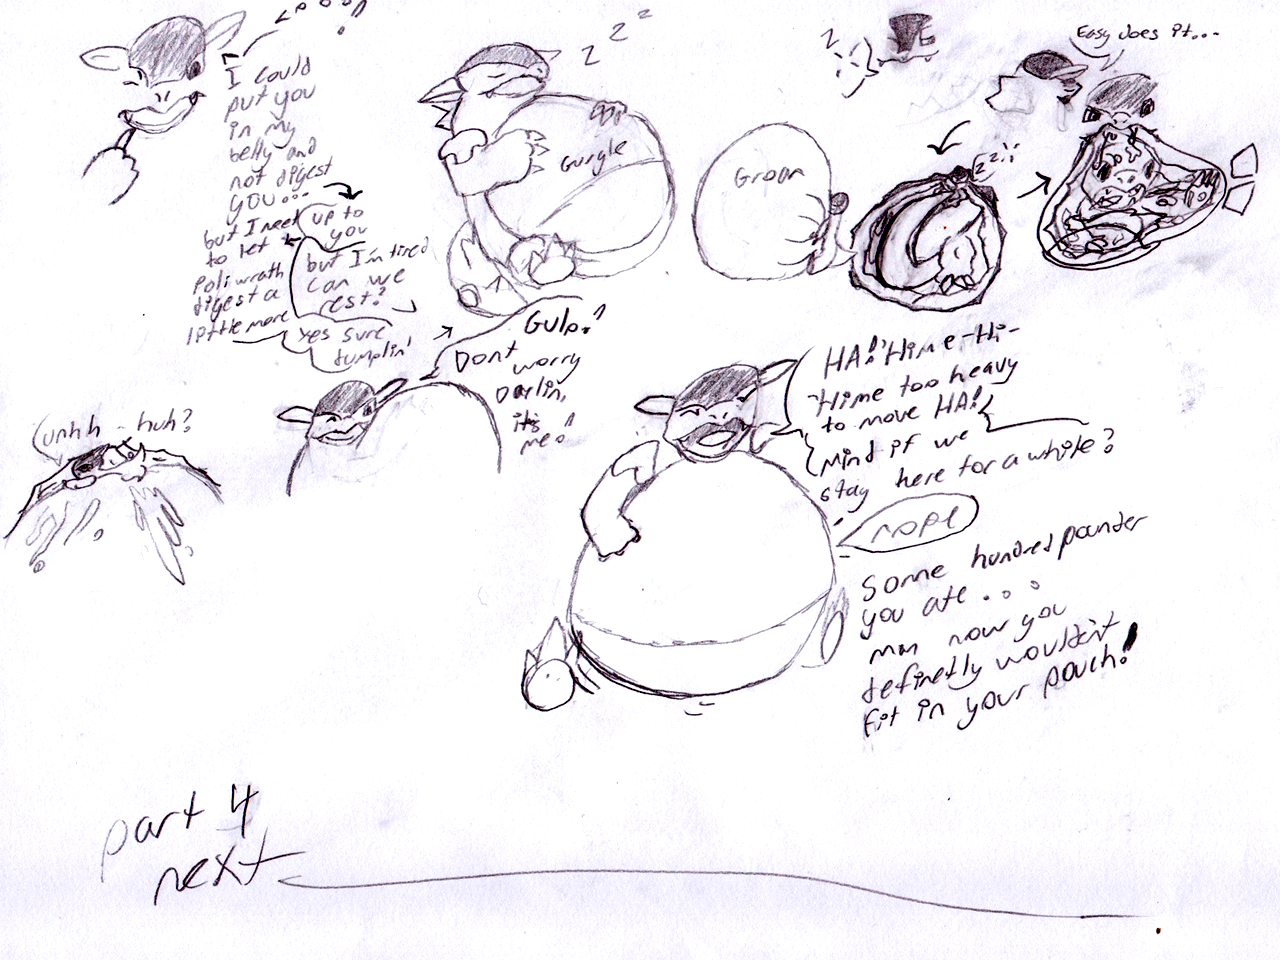 I could
put you
in my
belly and
not digest
you...
but I need
to let
poliwrath
digest a
little more
up to
you
but I'm tired
can we
rest?
yes sure
dumplin'
z z z
Gurgle
Groan
z
z z
Easy does it...
unhh-huh?
Gulp!
Dont
worry
Darlin,
it's
me!
HA! Hime-Hi-
Hime too heavy
to move HA!
Mind if we
stay here for a while?
nope
Some hundred pounder
you ate...
man now you
definetly wouldn't
fit in your pouch!
part 4
next